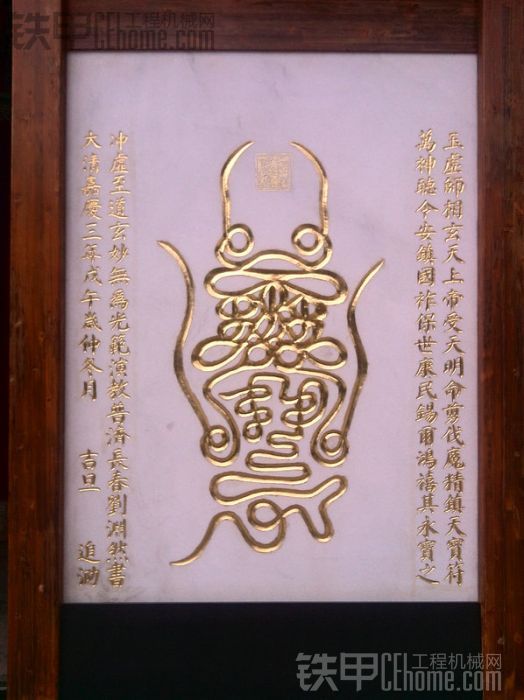 铁甲工程机械网
CEhome.com
玉虛師相玄天上帝受天明命剪伐魔精鎮天寶符
萬神聽令安鎮國祚保世康民錫爾鴻禧其永寶之
冲虛至道玄妙無為光範演教普濟長春劉淵然書
大清嘉慶三年戊午歲仲冬月 吉旦 追泐
铁甲工程机械网
CEhome.com